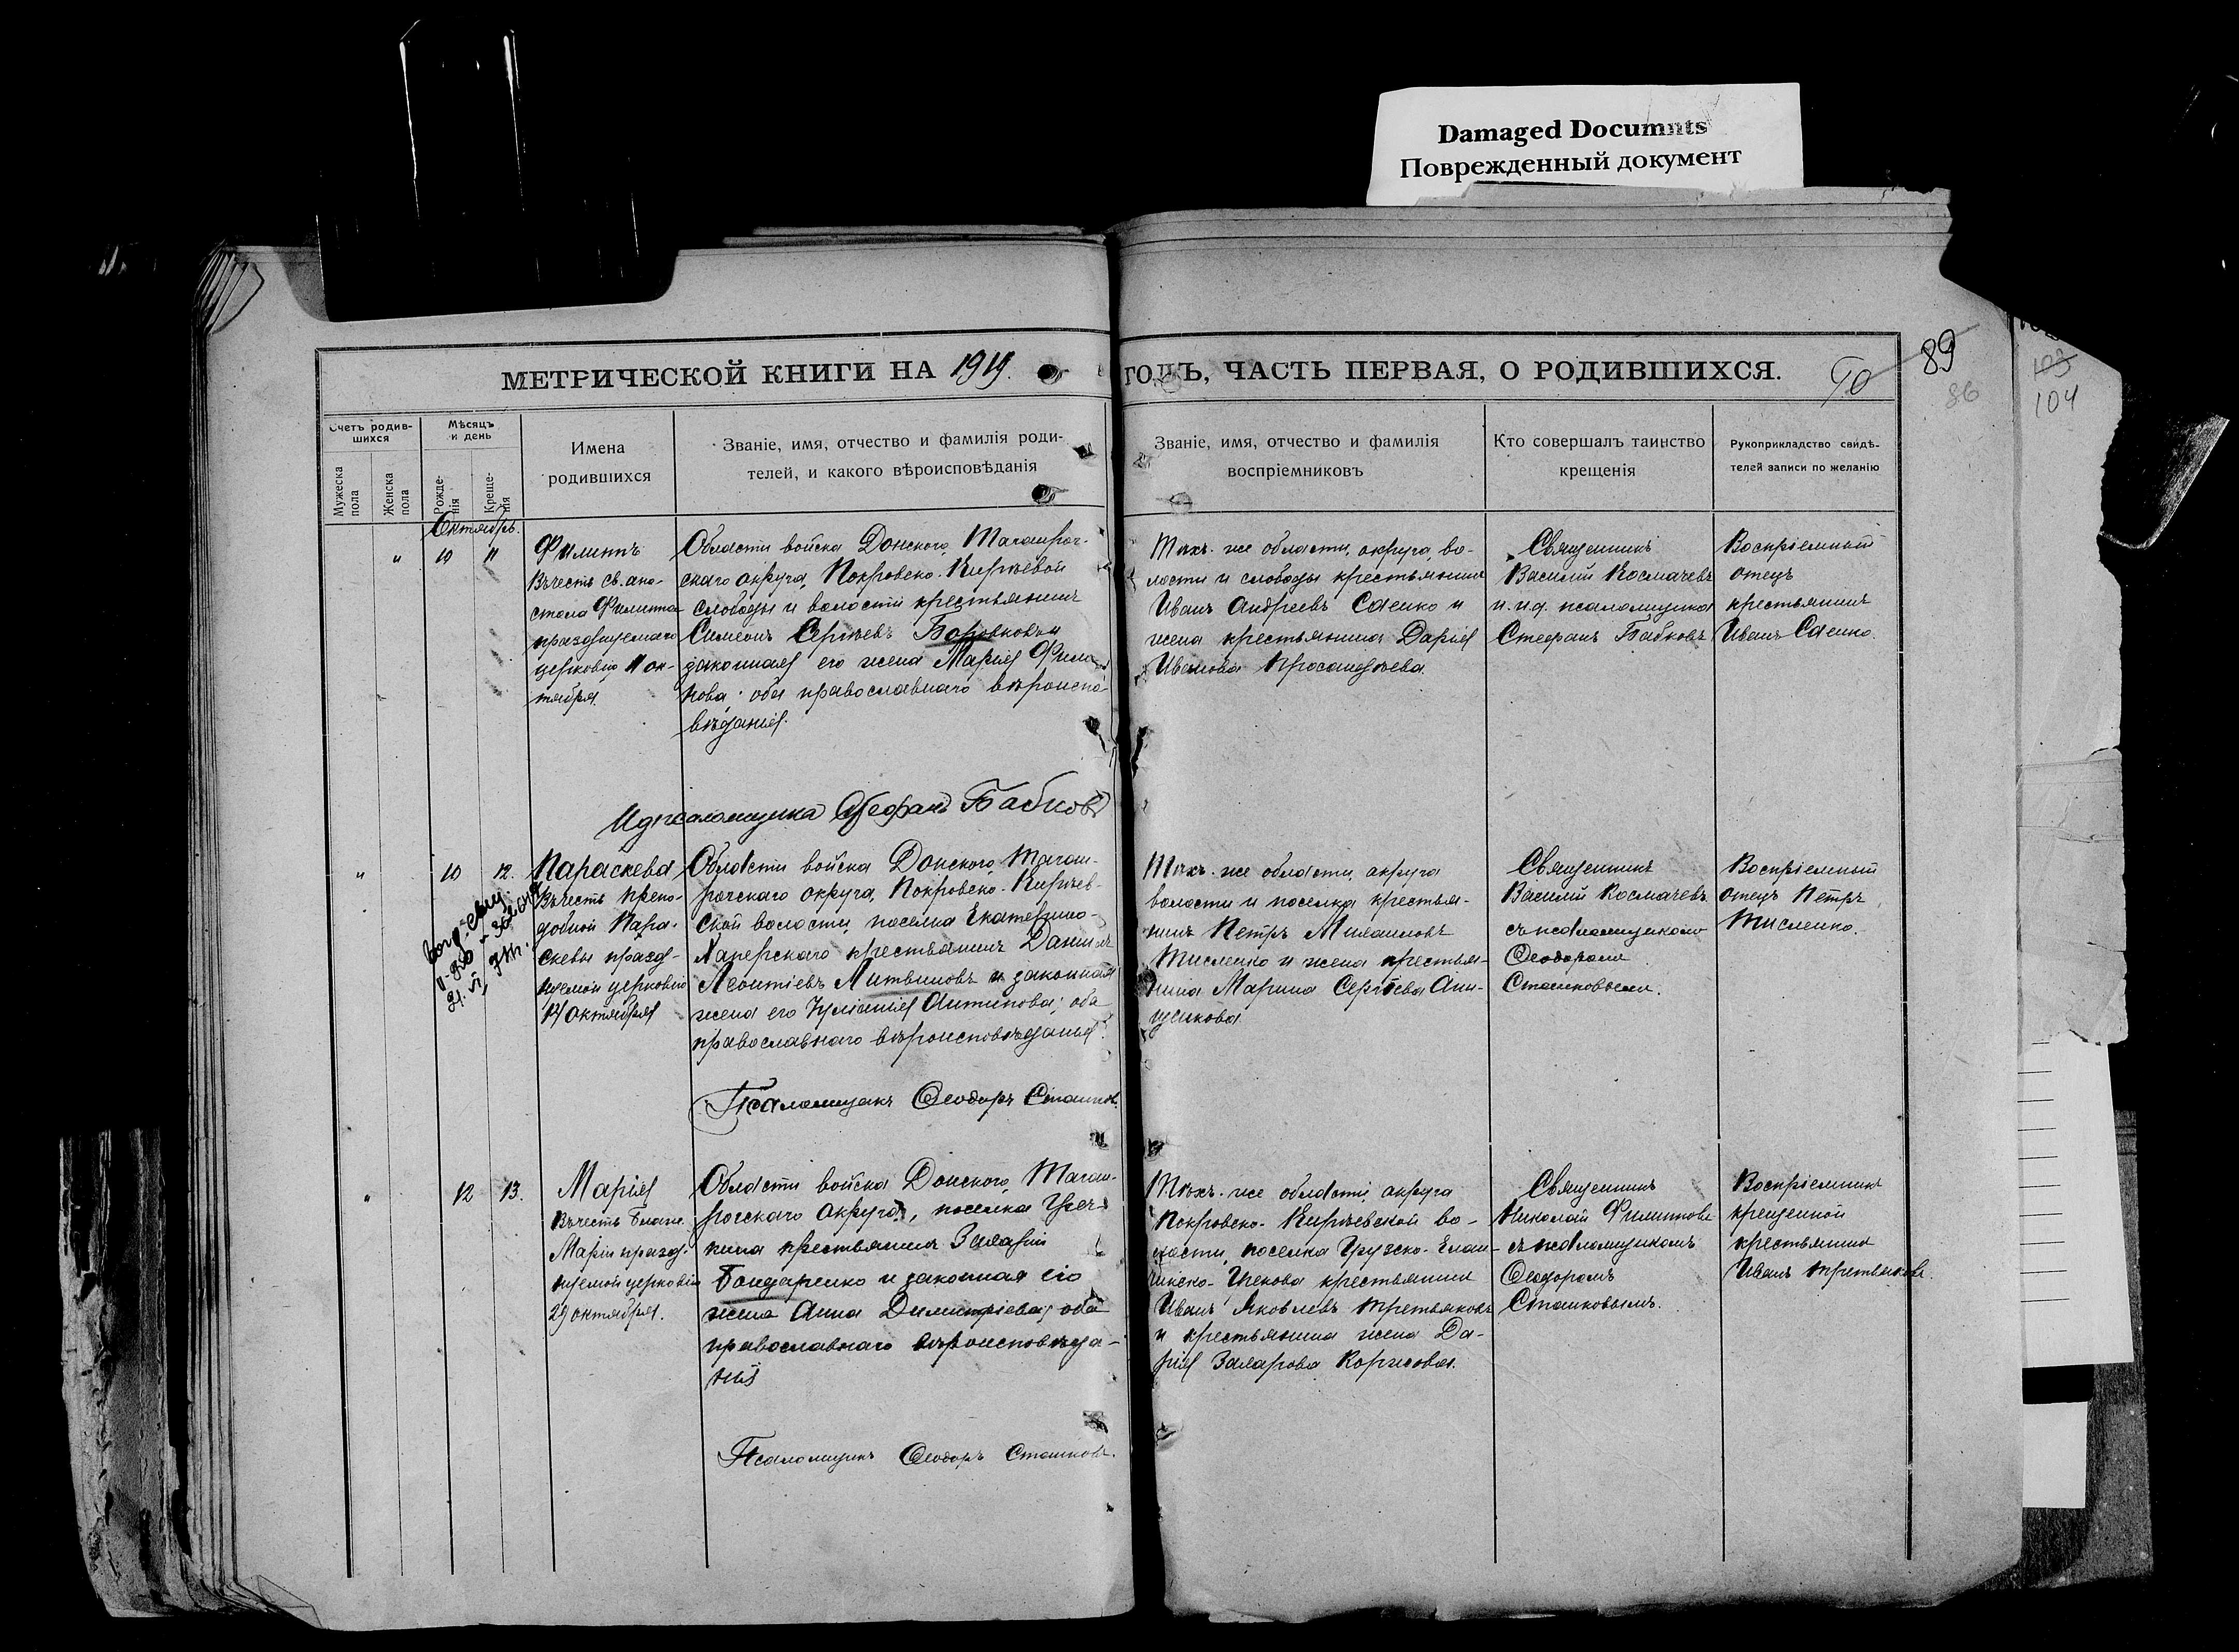 Damaged Documnts
Поврежденный документ
МЕТРИЧЕСКОЙ КНИГИ НА 1919 ГОДЪ, ЧАСТЬ ПЕРВАЯ, О РОДИВШИХСЯ.
90
89
86
103
104
Счетъ родив-
шихся
Мужеска пола
Женска пола
Мѣсяцъ
и день
Рожде-
нія
Креще-
нія
Имена
родившихся
Званіе, имя, отчество и фамилія роди-
телей, и какого вѣроисповѣданія
Званіе, имя, отчество и фамилія
воспріемниковъ
Кто совершалъ таинство
крещенія
Рукоприкладство свидѣ-
телей записи по желанію
Октябрь.
" 10 11
Филиппъ
Въ честь св. апо-
стола Филиппа
празднуемаго
церковію 11 ок-
тября.
Области войска Донского, Таганрог-
скаго округа, Покровско-Кирѣевой
слободы и волости крестьянинъ
Симеонъ Сергѣевъ Боровковъ и
законная его жена Марія
оба православнаго вѣроиспо-
вѣданія.
Тѣхъ-же области, округа, во-
лости и слободы крестьянинъ
Иванъ Андреевъ Саенко и
жена крестьянина Дарія
Иванова
Священникъ
Василій Космачевъ
и. и.д. псаломщика
Стефанъ Бабковъ
Воспріемный
отецъ
крестьянинъ
Иванъ Саенко.
Ид псаломщика Стефанъ Бабковъ
" 10 12.
Параскева
Въ честь препо-
добной Пара-
скевы празд-
нуемой церковію
14 октября
Области войска Донского, Таган-
рогскаго округа, Покровско-Кирѣев-
ской волости, поселка Екатерино-
Хаперскаго крестьянинъ Даніилъ
Леонтіевъ Литвиновъ и законная
жена его Іуліанія Антипова; оба
православнаго вѣроисповѣданія.
Тѣхъ-же области, округа
волости и поселка крестья-
нинъ Петръ Михаиловъ
Тисленко и жена крестья-
нина Марина Сергѣева
Священникъ
Василій Космачевъ
съ псаломщикомъ
Ѳеодоромъ
Сташковымъ.
Воспріемный
отецъ Петръ
Тисленко.
Псаломщикъ Ѳеодоръ Сташковъ.
" 12 13.
Марія
Въ честь
Маріи празд-
нуемой церковію
29 октября.
Области войска Донского, Таган-
рогскаго округа, поселка Гре-
кова крестьянинъ Захарій
Бондаренко и законная его
жена Анна Димитріева; оба
православнаго вѣроисповѣда-
нія
Тѣхъ-же области, округа
Покровско-Кирѣевской во-
лости, поселка Грузско-Елан-
чикско-Грекова крестьянинъ
Иванъ Яковлевъ Третьяковъ
и крестьянина жена Да-
рія Захарова Коржова.
Священникъ
Николай Филипповъ
съ псаломщикомъ
Ѳеодоромъ
Сташковымъ.
Воспріемникъ
крещенной
крестьянинъ
Иванъ Третьяковъ.
Псаломщикъ Ѳеодоръ Сташковъ.